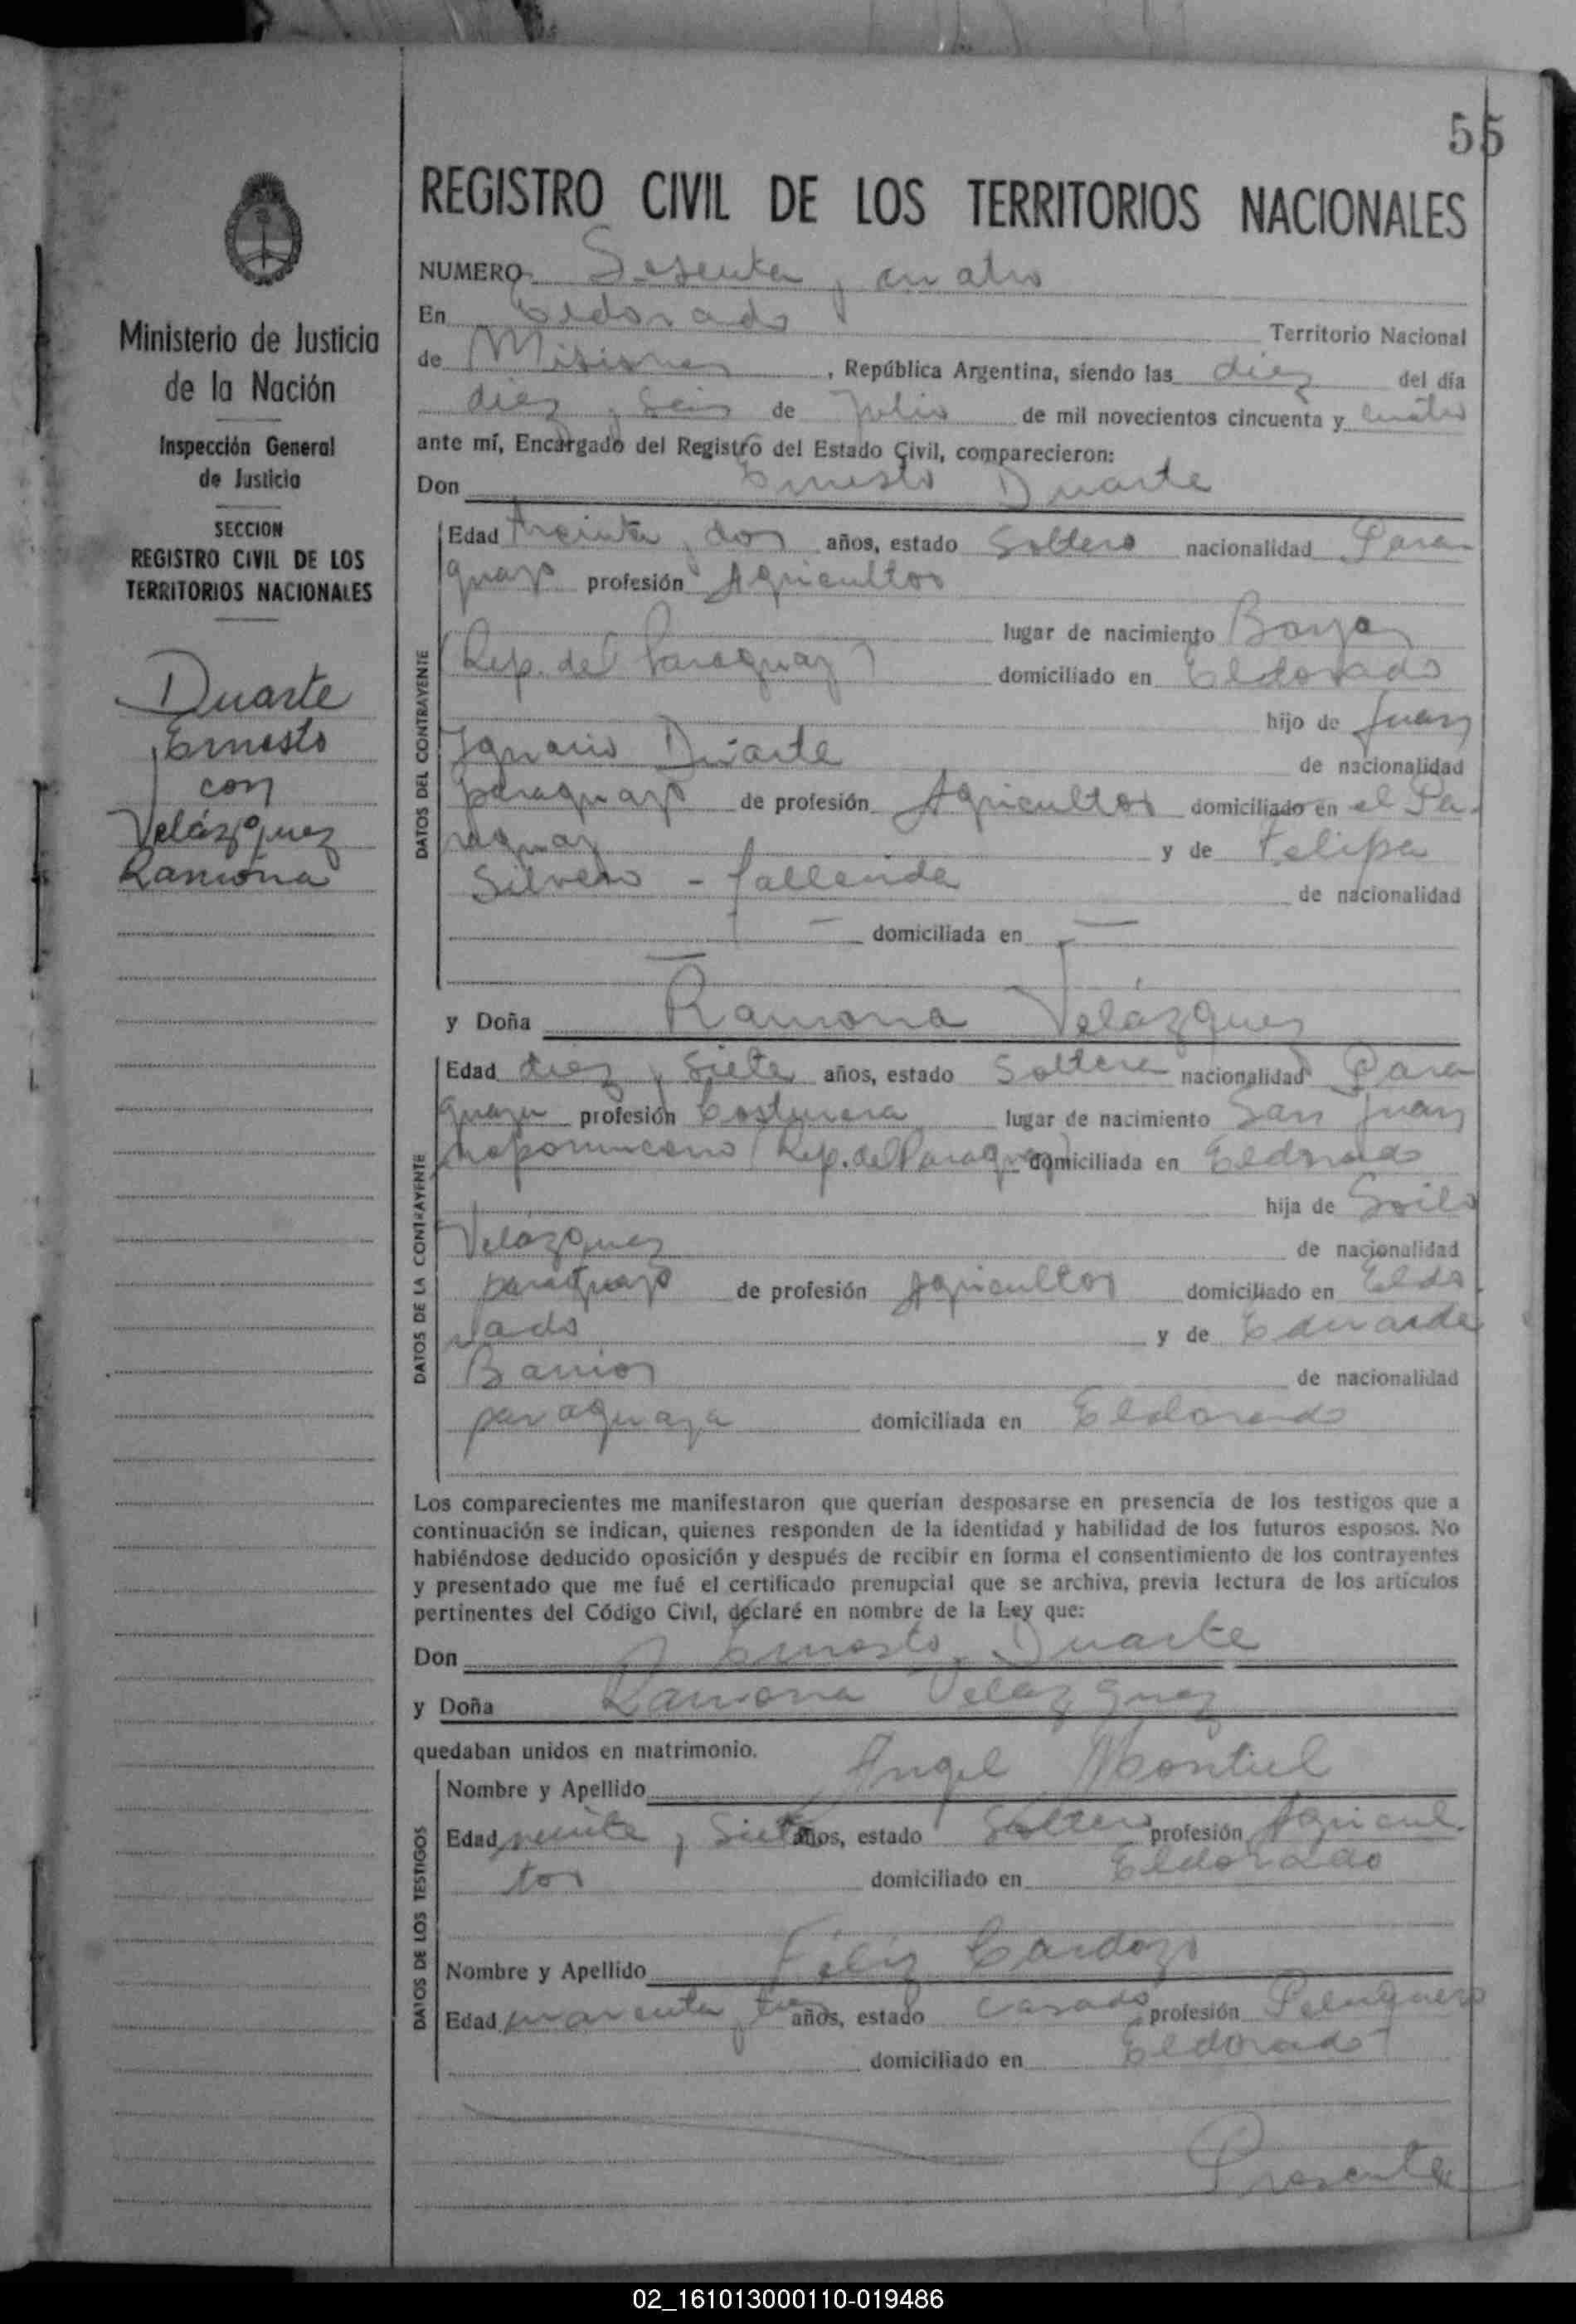 55
REGISTRO CIVIL DE LOS TERRITORIOS NACIONALES
Ministerio de Justicia
de la Nación
Inspección General
de Justicia
SECCION
REGISTRO CIVIL DE LOS
TERRITORIOS NACIONALES
Duarte
Ernesto
con
Velázquez
Ramona
NUMERO Sesenta y cuatro
En Eldorado Territorio Nacional
de Misiones, República Argentina, siendo las diez del día
diez y seis de Julio de mil novecientos cincuenta y cuatro
ante mí, Encargado del Registro del Estado Civil, comparecieron:
Don Ernesto Duarte
DATOS DEL CONTRAYENTE
Edad treinta y dos años, estado Soltero nacionalidad Para
guayo profesión Agricultor
lugar de nacimiento Borja
(Rep. del Paraguay) domiciliado en Eldorado
hijo de Juan
Ignacio Duarte de nacionalidad
paraguayo de profesión Agricultor domiciliado en el Pa-
raguay y de Felipa
Silvero - fallecida de nacionalidad
— domiciliada en —
y Doña Ramona Velázquez
DATOS DE LA CONTRAYENTE
Edad diez y siete años, estado Soltera nacionalidad Para
guaya profesión Costurera lugar de nacimiento San Juan
Nepomuceno (Rep. del Paraguay) domiciliada en Eldorado
hija de Soilo
Velázquez de nacionalidad
paraguayo de profesión Agricultor domiciliado en Eldo
rado y de Eduarda
Barrios de nacionalidad
paraguaya domiciliada en Eldorado
Los comparecientes me manifestaron que querían desposarse en presencia de los testigos que a
continuación se indican, quienes responden de la identidad y habilidad de los futuros esposos. No
habiéndose deducido oposición y después de recibir en forma el consentimiento de los contrayentes
y presentado que me fué el certificado prenupcial que se archiva, previa lectura de los artículos
pertinentes del Código Civil, declaré en nombre de la Ley que:
Don Ernesto Duarte
y Doña Ramona Velázquez
quedaban unidos en matrimonio.
DATOS DE LOS TESTIGOS
Nombre y Apellido Angel Montiel
Edad veinte y siete años, estado Soltero profesión Agricul-
tor domiciliado en Eldorado
Nombre y Apellido Féliz Cardozo
Edad cuarenta y tres años, estado casado profesión Peluquero
domiciliado en Eldorado
Presente
02_161013000110-019486